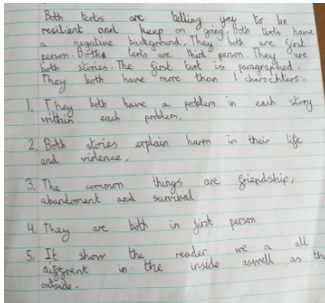 Both texts are telling you to be
resilient and keep on going. Both texts have
a negative background, They both are first
person. Boths texts are third person. They are
both stories. The first text is paragraphed.
They both have more than 1 charechters.
1. They both have a problem in each story
within each problem.
2. Both stories explain harm in their life
and violence.
3. The common things are friendship,
abandoment and survival
4. They are both in first person
5. It show the reader we a all
different in the inside aswell as th
outside.